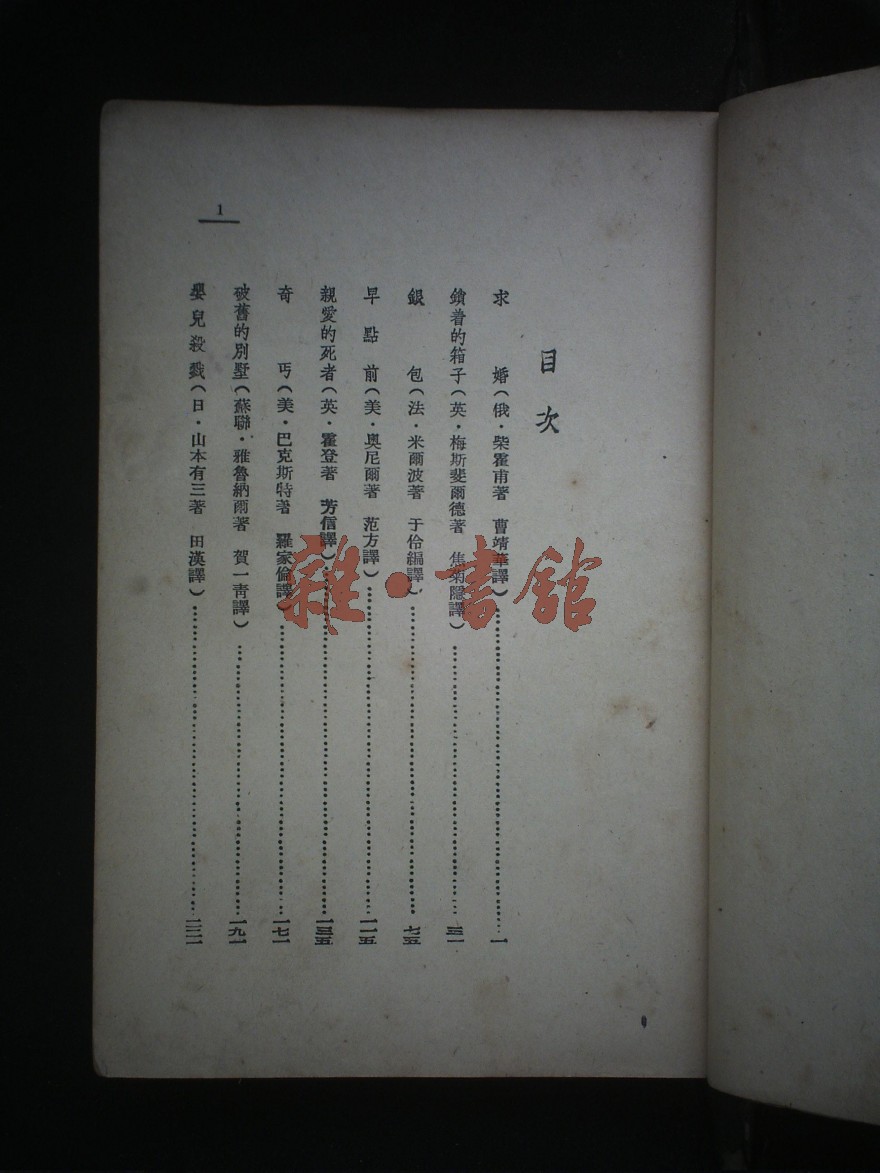 目次
求婚(俄·柴霍甫著 曹靖華譯)……一
鎖着的箱子(英·梅斯斐爾德著 焦菊隱譯)……三一
銀包(法·米爾波著 于伶編譯)……七五
早點前(美·奧尼爾著 范方譯)……一一五
親愛的死者(英·霍登著 芳信譯)……一三五
奇丐(美·巴克斯特著 羅家倫譯)……一七一
破舊的別墅(蘇聯·雅魯納爾著 賀一青譯)……一九一
嬰兒殺戮(日·山本有三著 田漢譯)……
1
雜·書館